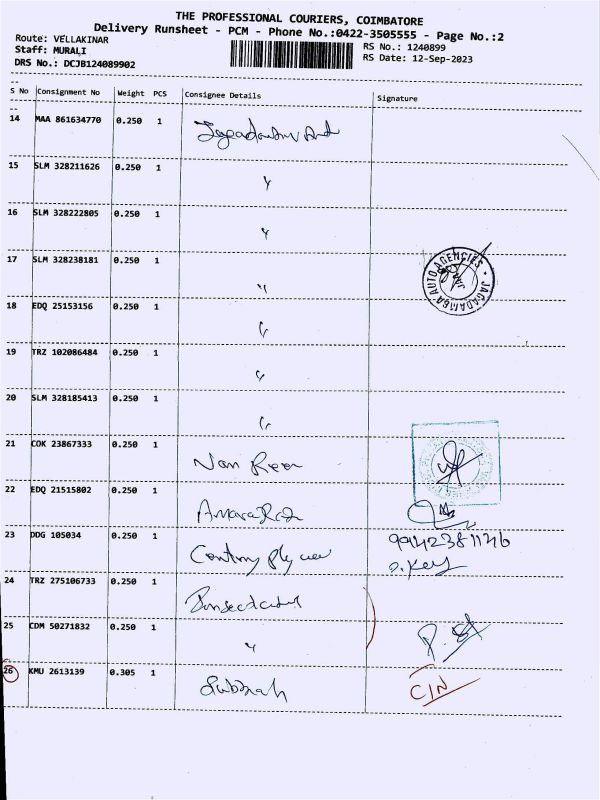 THE PROFESSIONAL COURIERS, COIMBATORE
Delivery Runsheet - PCM - Phone No.:0422-3505555 - Page No.:2
Route: VELLAKINAR
Staff: MURALI
DRS No.: DCJB124089902
RS No.: 1240899
RS Date: 12-Sep-2023
S No Consignment No Weight PCS Consignee Details Signature
14 MAA 861634770 0.250 1
15 SLM 328211626 0.250 1 "
16 SLM 328222805 0.250 1 "
17 SLM 328238181 0.250 1 "
JAGADAMBA AUTO AGENCIES
18 EDQ 25153156 0.250 1 "
19 TRZ 102086484 0.250 1 "
20 SLM 328185413 0.250 1 "
21 COK 23867333 0.250 1
22 EDQ 21515802 0.250 1 AmaraRaja
23 DDG 105034 0.250 1 Century Ply
24 TRZ 275106733 0.250 1
25 CDM 50271832 0.250 1 "
26 KMU 2613139 0.305 1 Subbiah CIN